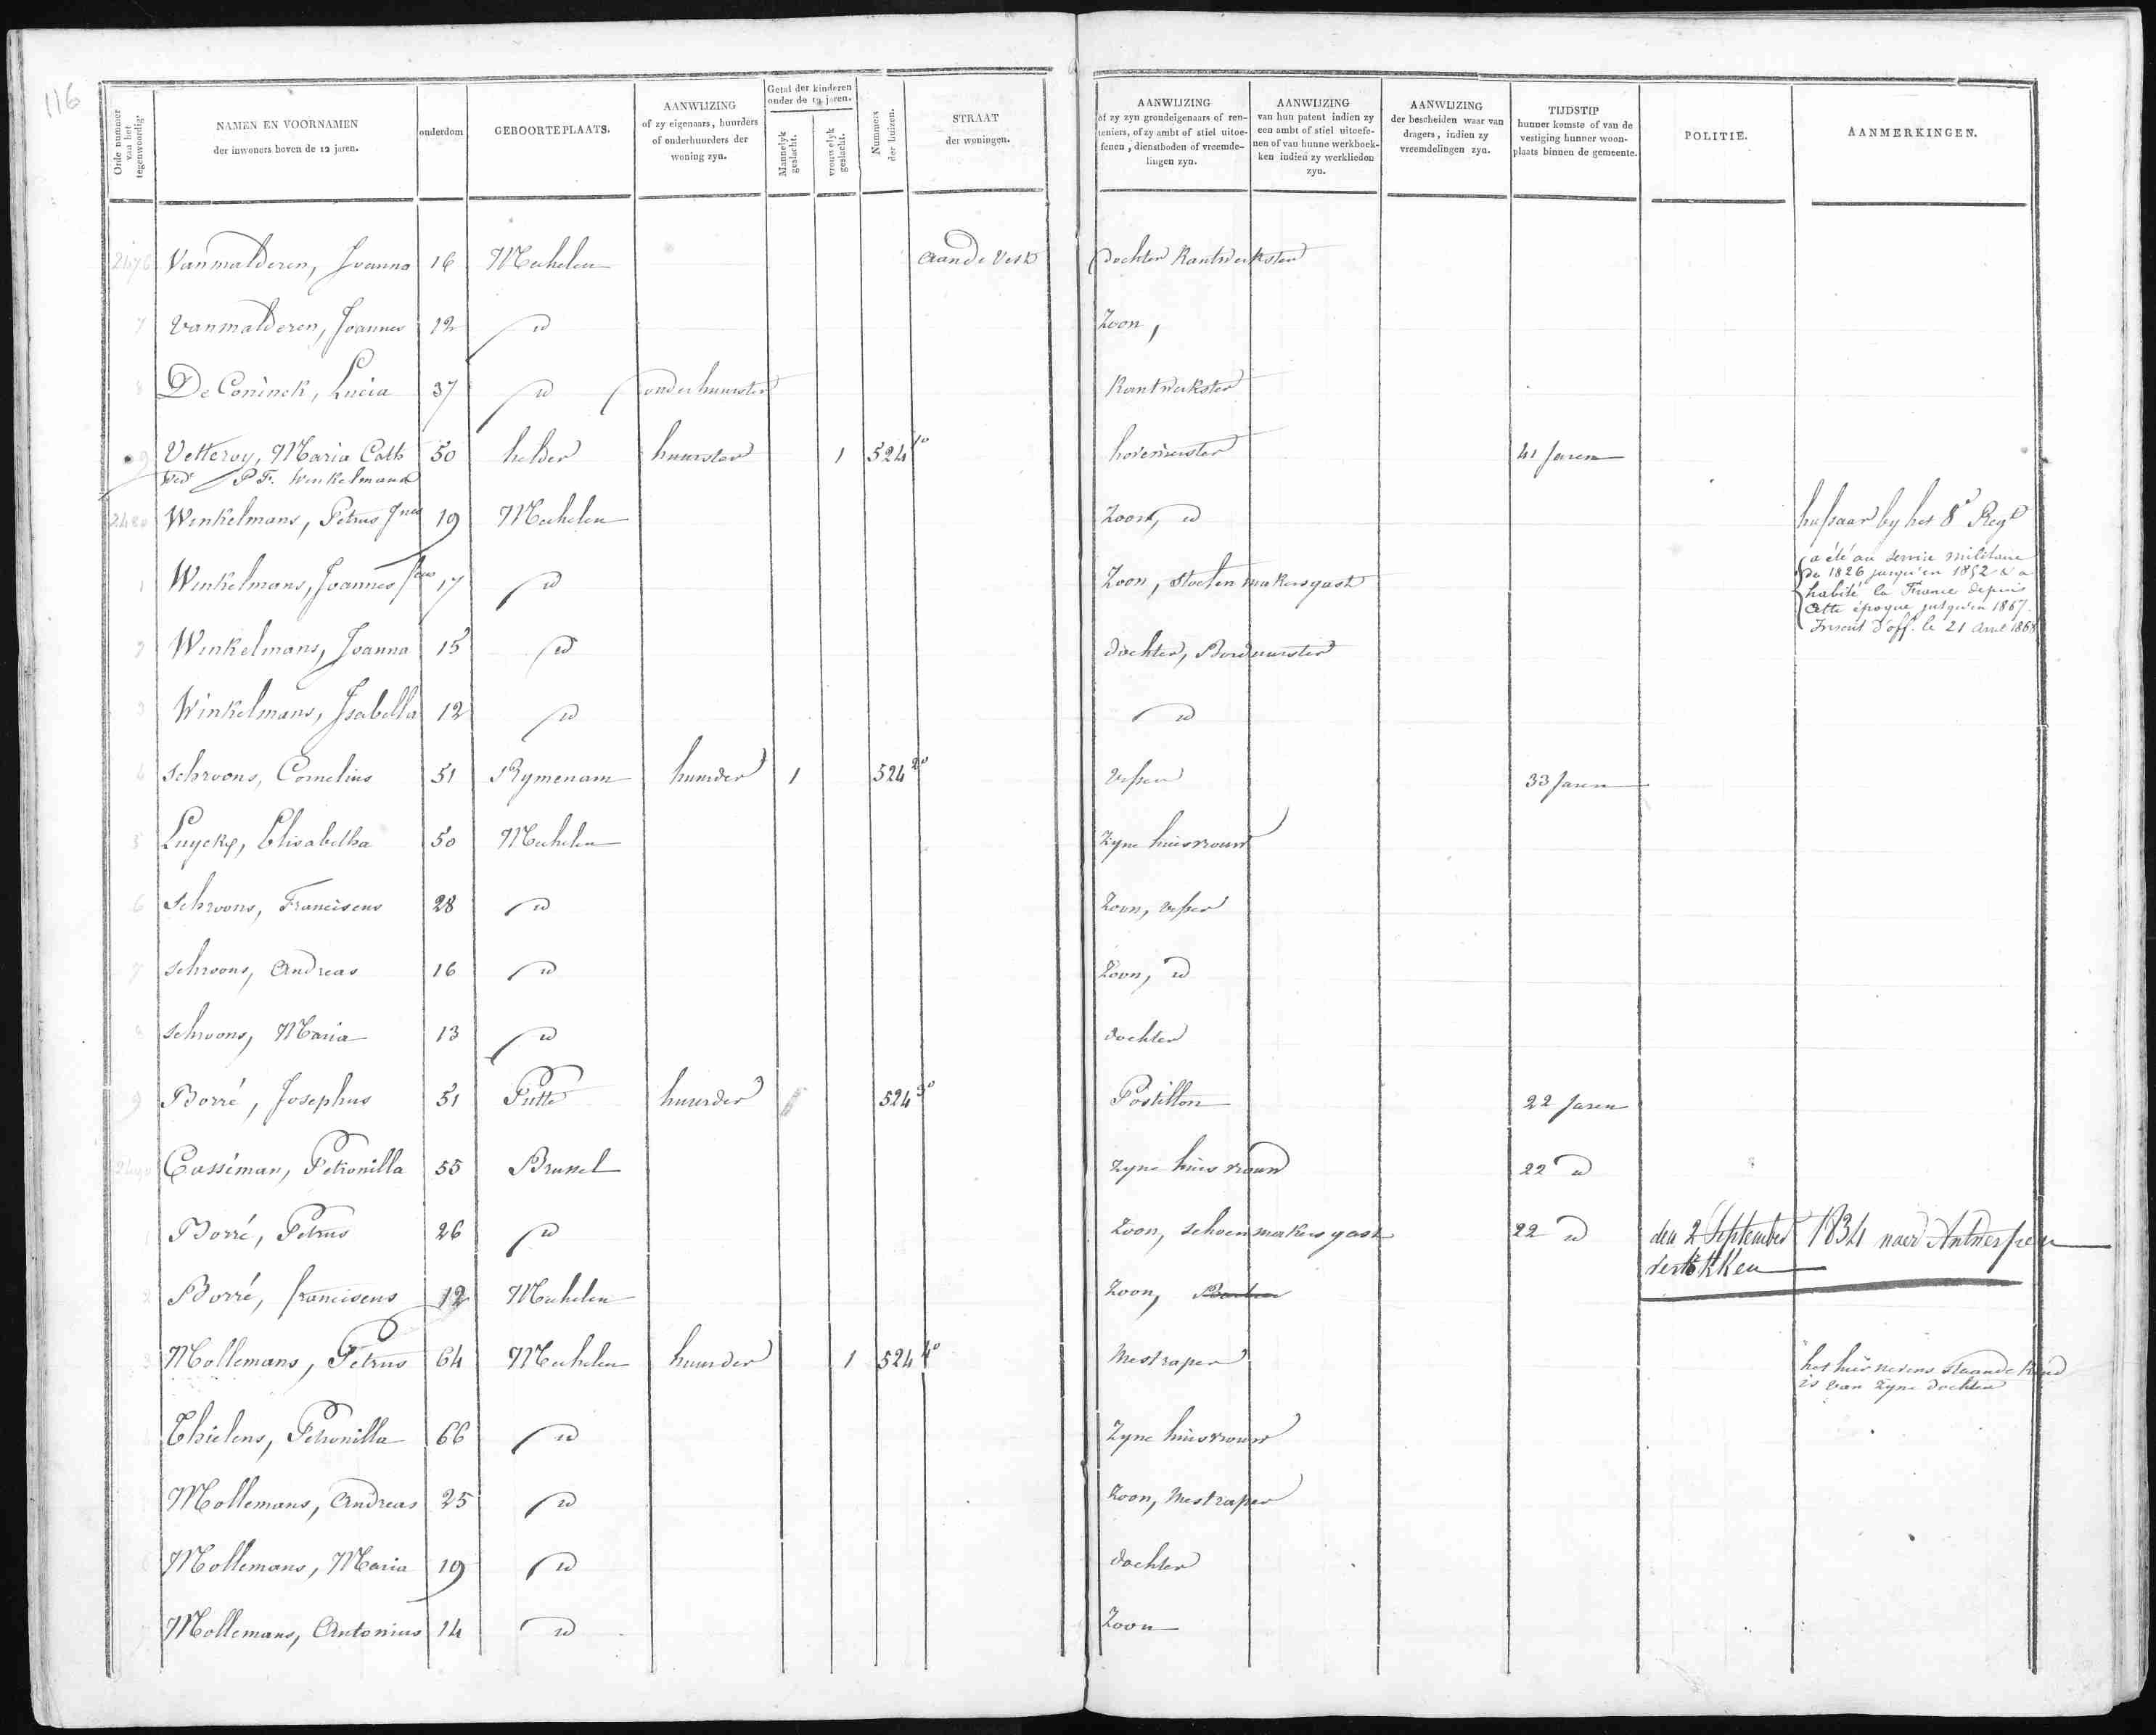 116
Orde nummer van het tegenwoordig.
NAMEN EN VOORNAMEN
der inwoners boven de 12 jaren.
onderdom
GEBOORTEPLAATS.
AANWIJZING
of zy eigenaars, huurders
of onderhuurders der
woning zyn.
Getal der kinderen
onder de 12 jaren.
Mannelyk geslacht.
vrouwelyk geslacht.
Nummers der huizen.
STRAAT
der woningen.
AANWIJZING
of zy zyn grondeigenaars of ren-
teniers, of zy ambt of stiel uitoe-
fenen, dienstboden of vreemde-
lingen zyn.
AANWIJZING
van hun patent indien zy
een ambt of stiel uitoefe-
nen of van hunne werkboek-
ken indien zy werklieden
zyn.
AANWIJZING
der bescheiden waar van
dragers, indien zy
vreemdelingen zyn.
TIJDSTIP
hunner komste of van de
vestiging hunner woon-
plaats binnen de gemeente.
POLITIE.
AANMERKINGEN.
2476 Vanmalderen, Joanna 16 Mechelen aan de Vest dochter Kantwerkster
7 Vanmalderen, Joannes 12 id Zoon,
8 De Coninck, Lucia 37 id onderhuurster Kantwerkster
9 Vetteroy, Maria Cath 50 helder huurster 1 524 1° hovenierster 41 Jaren
Wed P.F. Winkelmans
2480 Winkelmans, Petrus 19 Mechelen Zoon, id hussaar by het 8e Regt
1 Winkelmans, Joannes 17 id Zoon, Stoelenmakersgast
a été au service militaire
de 1826 jusqu'en 1852 & a
habité la France depuis
cette époque jusqu'en 1867.
Inscrit d'off. le 21 Avril 1868
2 Winkelmans, Joanna 15 id dochter, Borduurster
3 Winkelmans, Isabella 12 id id
4 Schroons, Cornelius 51 Rymenam huurder 1 524 2° Visser 33 Jaren
5 Luyckx, Elisabetha 50 Mechelen Zyne huisvrouw
6 Schroons, Franciscus 28 id Zoon, visser
7 Schroons, Andreas 16 id Zoon, id
8 Schroons, Maria 13 id dochter
9 Borré, Josephus 51 Putte huurder 524 3° Postillon 22 Jaren
2490 Casseman, Petronilla 55 Brussel zyne huisvrouw 22 id
1 Borré, Petrus 26 id Zoon, schoenmakersgast 22 id den 2 September 1834 naer Antwerpen
vertokken
2 Borré, franciscus 12 Mechelen Zoon,
3 Mollemans, Petrus 64 Mechelen huurder 1 524 4° Mestraper het hier nevens staande Kind
is van zyne dochter
Thielens, Petronilla 66 id Zyne huisvrouw
Mollemans, Andreas 25 id Zoon, Mestraper
Mollemans, Maria 19 id dochter
Mollemans, Antonius 14 id Zoon